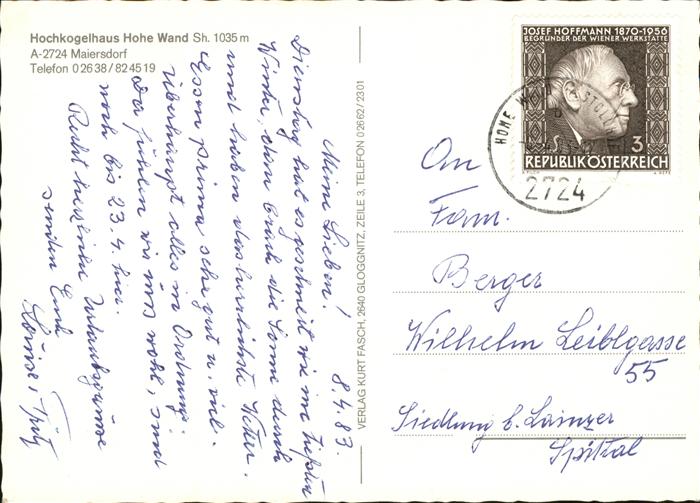 Hochkogelhaus Hohe Wand Sh. 1035 m
A-2724 Maiersdorf
Telefon 0 26 38 / 82 45 19
8.4.83.
Meine Lieben!
Dienstag hat es geschneit wie im tiefsten
Winter, dann brach die Sonne durch
und haben das herrlichste Wetter.
Essen prima sehr gut u. viel.
überhaupt alles in Ordnung.
Da fühlen wir uns wohl, sind
noch bis 23.4. hier.
Recht herzliche Urlaubsgrüsse
senden Euch
Luise + Fritz
VERLAG KURT FASCH, 2640 GLOGGNITZ, ZEILE 3, TELEFON 0 26 62 / 23 01
JOSEF HOFFMANN 1870-1956
BEGRÜNDER DER WIENER WERKSTÄTTE
S 3
REPUBLIK ÖSTERREICH
HOHE
2724
An
Fam.
Berger
Wilhelm Leiblgasse
55
Siedlung b. Lainzer
Spital